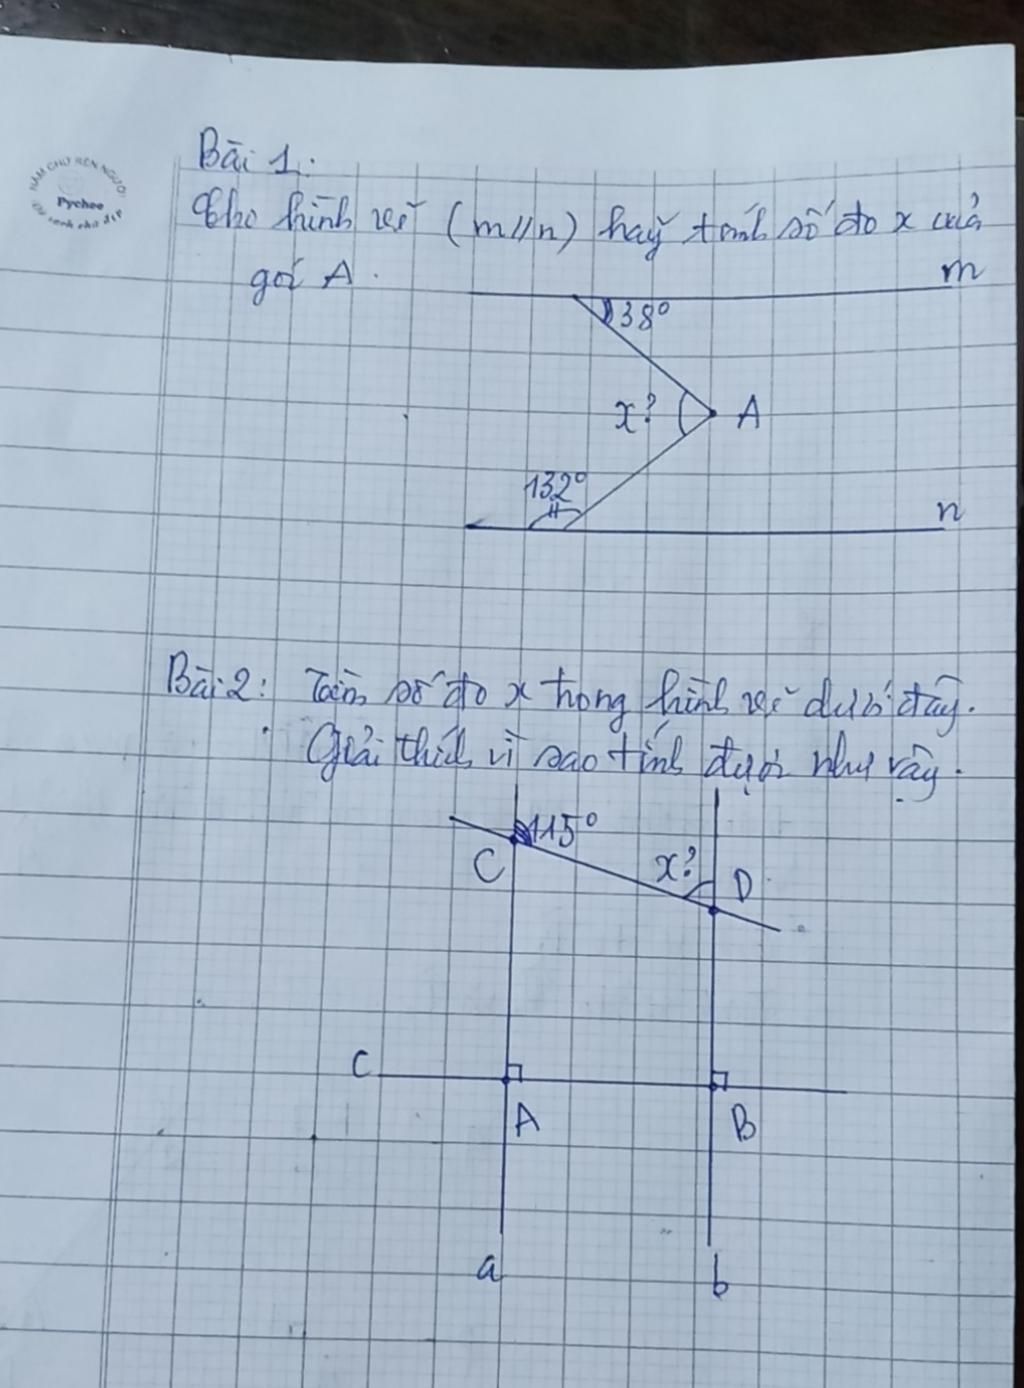 NÂM CHỮ RÈN NGƯỜI
Pychee
Bài 1:
Cho hình vẽ (m//n) hãy tính số đo x của
góc A.
m
38°
x?
A
132°
n
Bài 2: Tìm số đo x trong hình vẽ dưới đây.
Giải thích vì sao tính được như vậy.
115°
C
x?
D
C
A
B
a
b